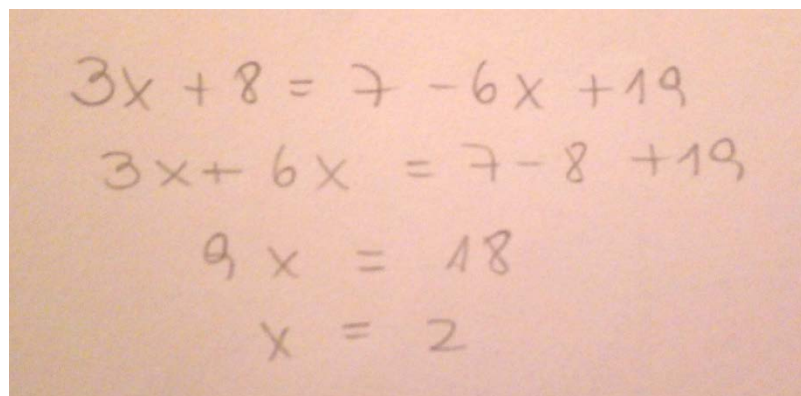 3x + 8 = 7 - 6x + 19
3x + 6x = 7 - 8 + 19
9x = 18
x = 2